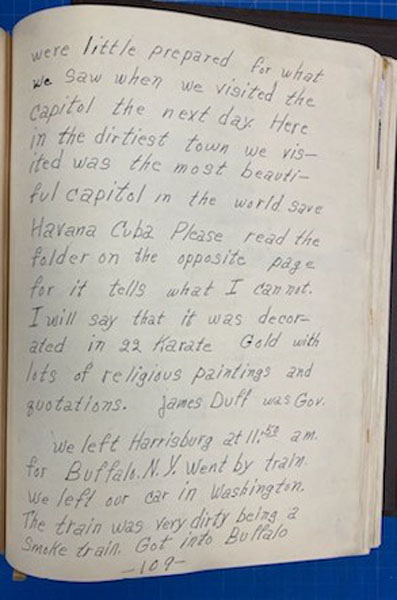 were little prepared for what
we saw when we visited the
capitol the next day. Here
in the dirtiest town we vis-
ited was the most beauti-
ful capitol in the world save
Havana Cuba Please read the
folder on the opposite page
for it tells what I can not.
I will say that it was decor-
ated in 22 Karate Gold with
lots of religious paintings and
quotations. James Duff was Gov.
We left Harrisburg at 11:50 am.
for Buffalo. N.Y. Went by train.
We left our car in Washington.
The train was very dirty being a
smoke train. Got into Buffalo
-109-